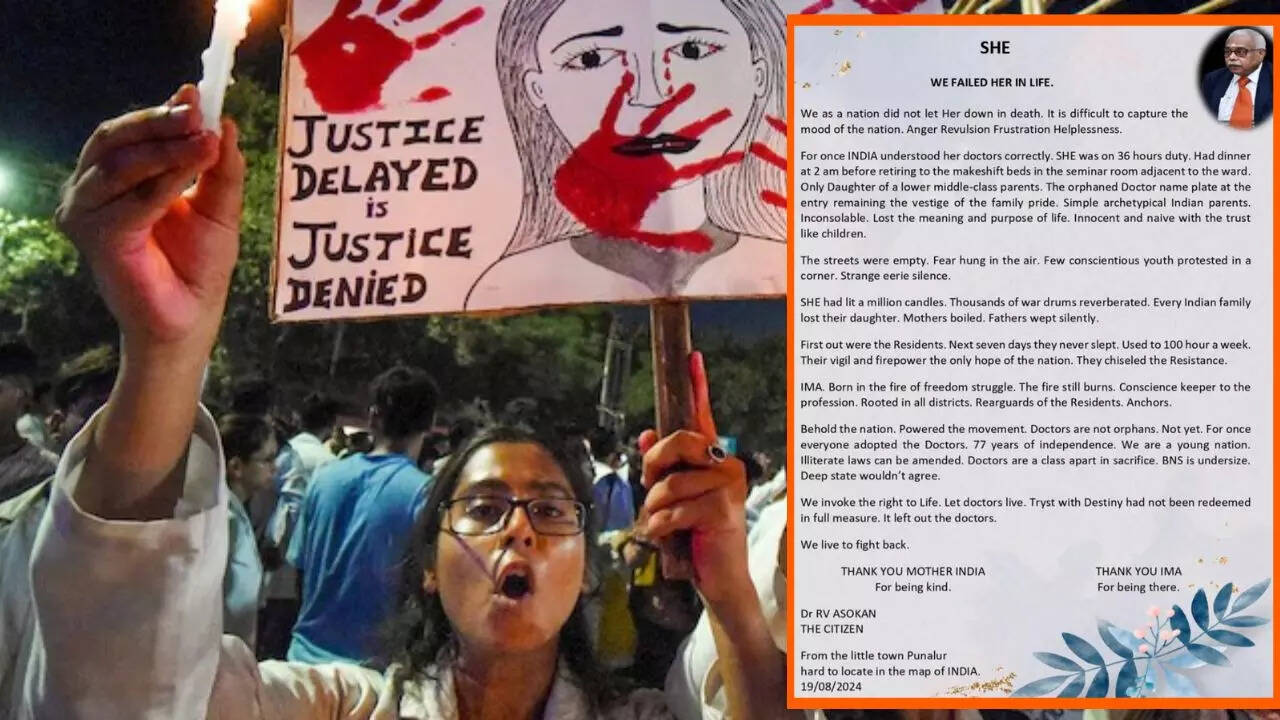 JUSTICE
DELAYED
is
JUSTICE
DENIED
SHE
WE FAILED HER IN LIFE.
We as a nation did not let Her down in death. It is difficult to capture the
mood of the nation. Anger Revulsion Frustration Helplessness.
For once INDIA understood her doctors correctly. SHE was on 36 hours duty. Had dinner
at 2 am before retiring to the makeshift beds in the seminar room adjacent to the ward.
Only Daughter of a lower middle-class parents. The orphaned Doctor name plate at the
entry remaining the vestige of the family pride. Simple archetypical Indian parents.
Inconsolable. Lost the meaning and purpose of life. Innocent and naive with the trust
like children.
The streets were empty. Fear hung in the air. Few conscientious youth protested in a
corner. Strange eerie silence.
SHE had lit a million candles. Thousands of war drums reverberated. Every Indian family
lost their daughter. Mothers boiled. Fathers wept silently.
First out were the Residents. Next seven days they never slept. Used to 100 hour a week.
Their vigil and firepower the only hope of the nation. They chiseled the Resistance.
IMA. Born in the fire of freedom struggle. The fire still burns. Conscience keeper to the
profession. Rooted in all districts. Rearguards of the Residents. Anchors.
Behold the nation. Powered the movement. Doctors are not orphans. Not yet. For once
everyone adopted the Doctors. 77 years of independence. We are a young nation.
Illiterate laws can be amended. Doctors are a class apart in sacrifice. BNS is undersize.
Deep state wouldn't agree.
We invoke the right to Life. Let doctors live. Tryst with Destiny had not been redeemed
in full measure. It left out the doctors.
We live to fight back.
THANK YOU MOTHER INDIA THANK YOU IMA
For being kind. For being there.
Dr RV ASOKAN
THE CITIZEN
From the little town Punalur
hard to locate in the map of INDIA.
19/08/2024